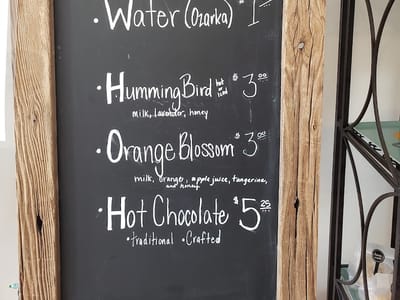 • Water (Ozarka) $1
• HummingBird hot or iced $3.00
milk, lavender, honey
• Orange Blossom $3.00
milk, orange, apple juice, tangerine,
and honey
• Hot Chocolate $5.25
• traditional • Crafted